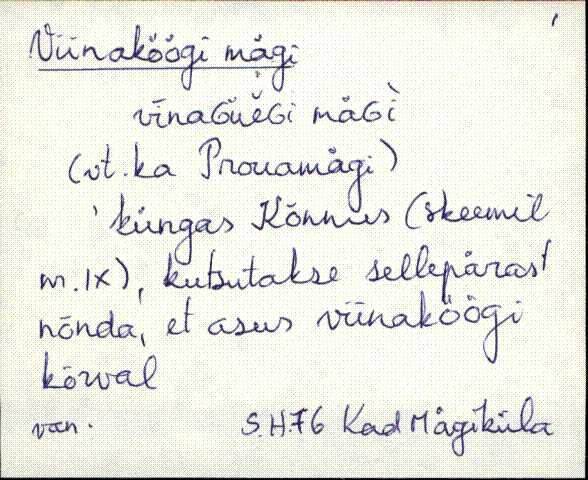 Viinaköögi mägi
vīnaGüěGi mäGì
(vt. ka Prouamägi)
'küngas Kõnnus (skeemil
nr. IX), kutsutakse sellepärast
nõnda, et asus viinaköögi
kõrval
van. S.H.76 Kad Mägiküla